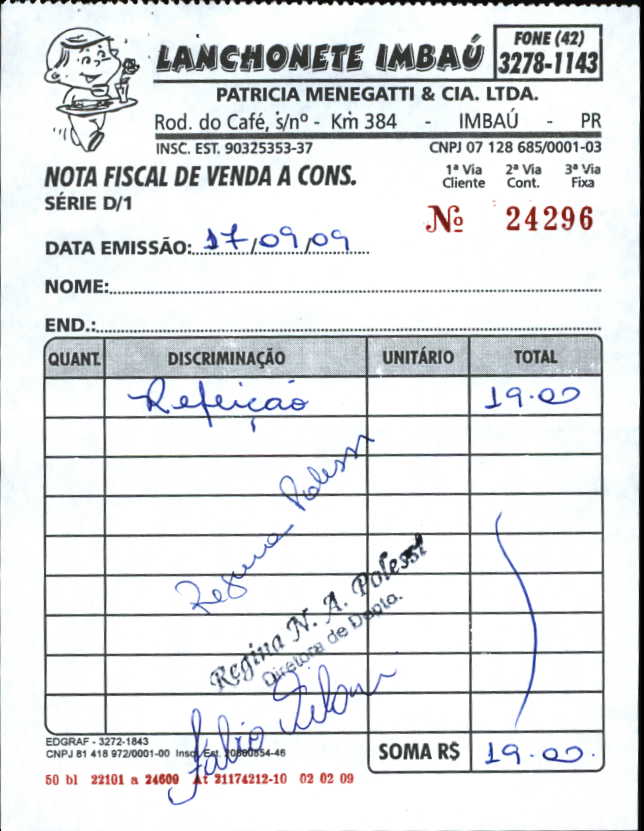 LANCHONETE IMBAÚ
FONE (42)
3278-1143
PATRICIA MENEGATTI & CIA. LTDA.
Rod. do Café, s/nº - Km 384 - IMBAÚ - PR
INSC. EST. 90325353-37 CNPJ 07 128 685/0001-03
NOTA FISCAL DE VENDA A CONS.
SÉRIE D/1
1ª Via Cliente 2ª Via Cont. 3ª Via Fixa
Nº 24296
DATA EMISSÃO: 17/09/09
NOME:
END.:
QUANT. DISCRIMINAÇÃO UNITÁRIO TOTAL
Refeição 19.00
Regina Polessi
Regina N. A. Polessi
Diretora de Depto.
Fabio
SOMA R$ 19.00.
EDGRAF - 3272-1843
CNPJ 81 418 972/0001-00 Insc. Est. 20800854-46
50 bl 22101 a 24600 At 21174212-10 02 02 09